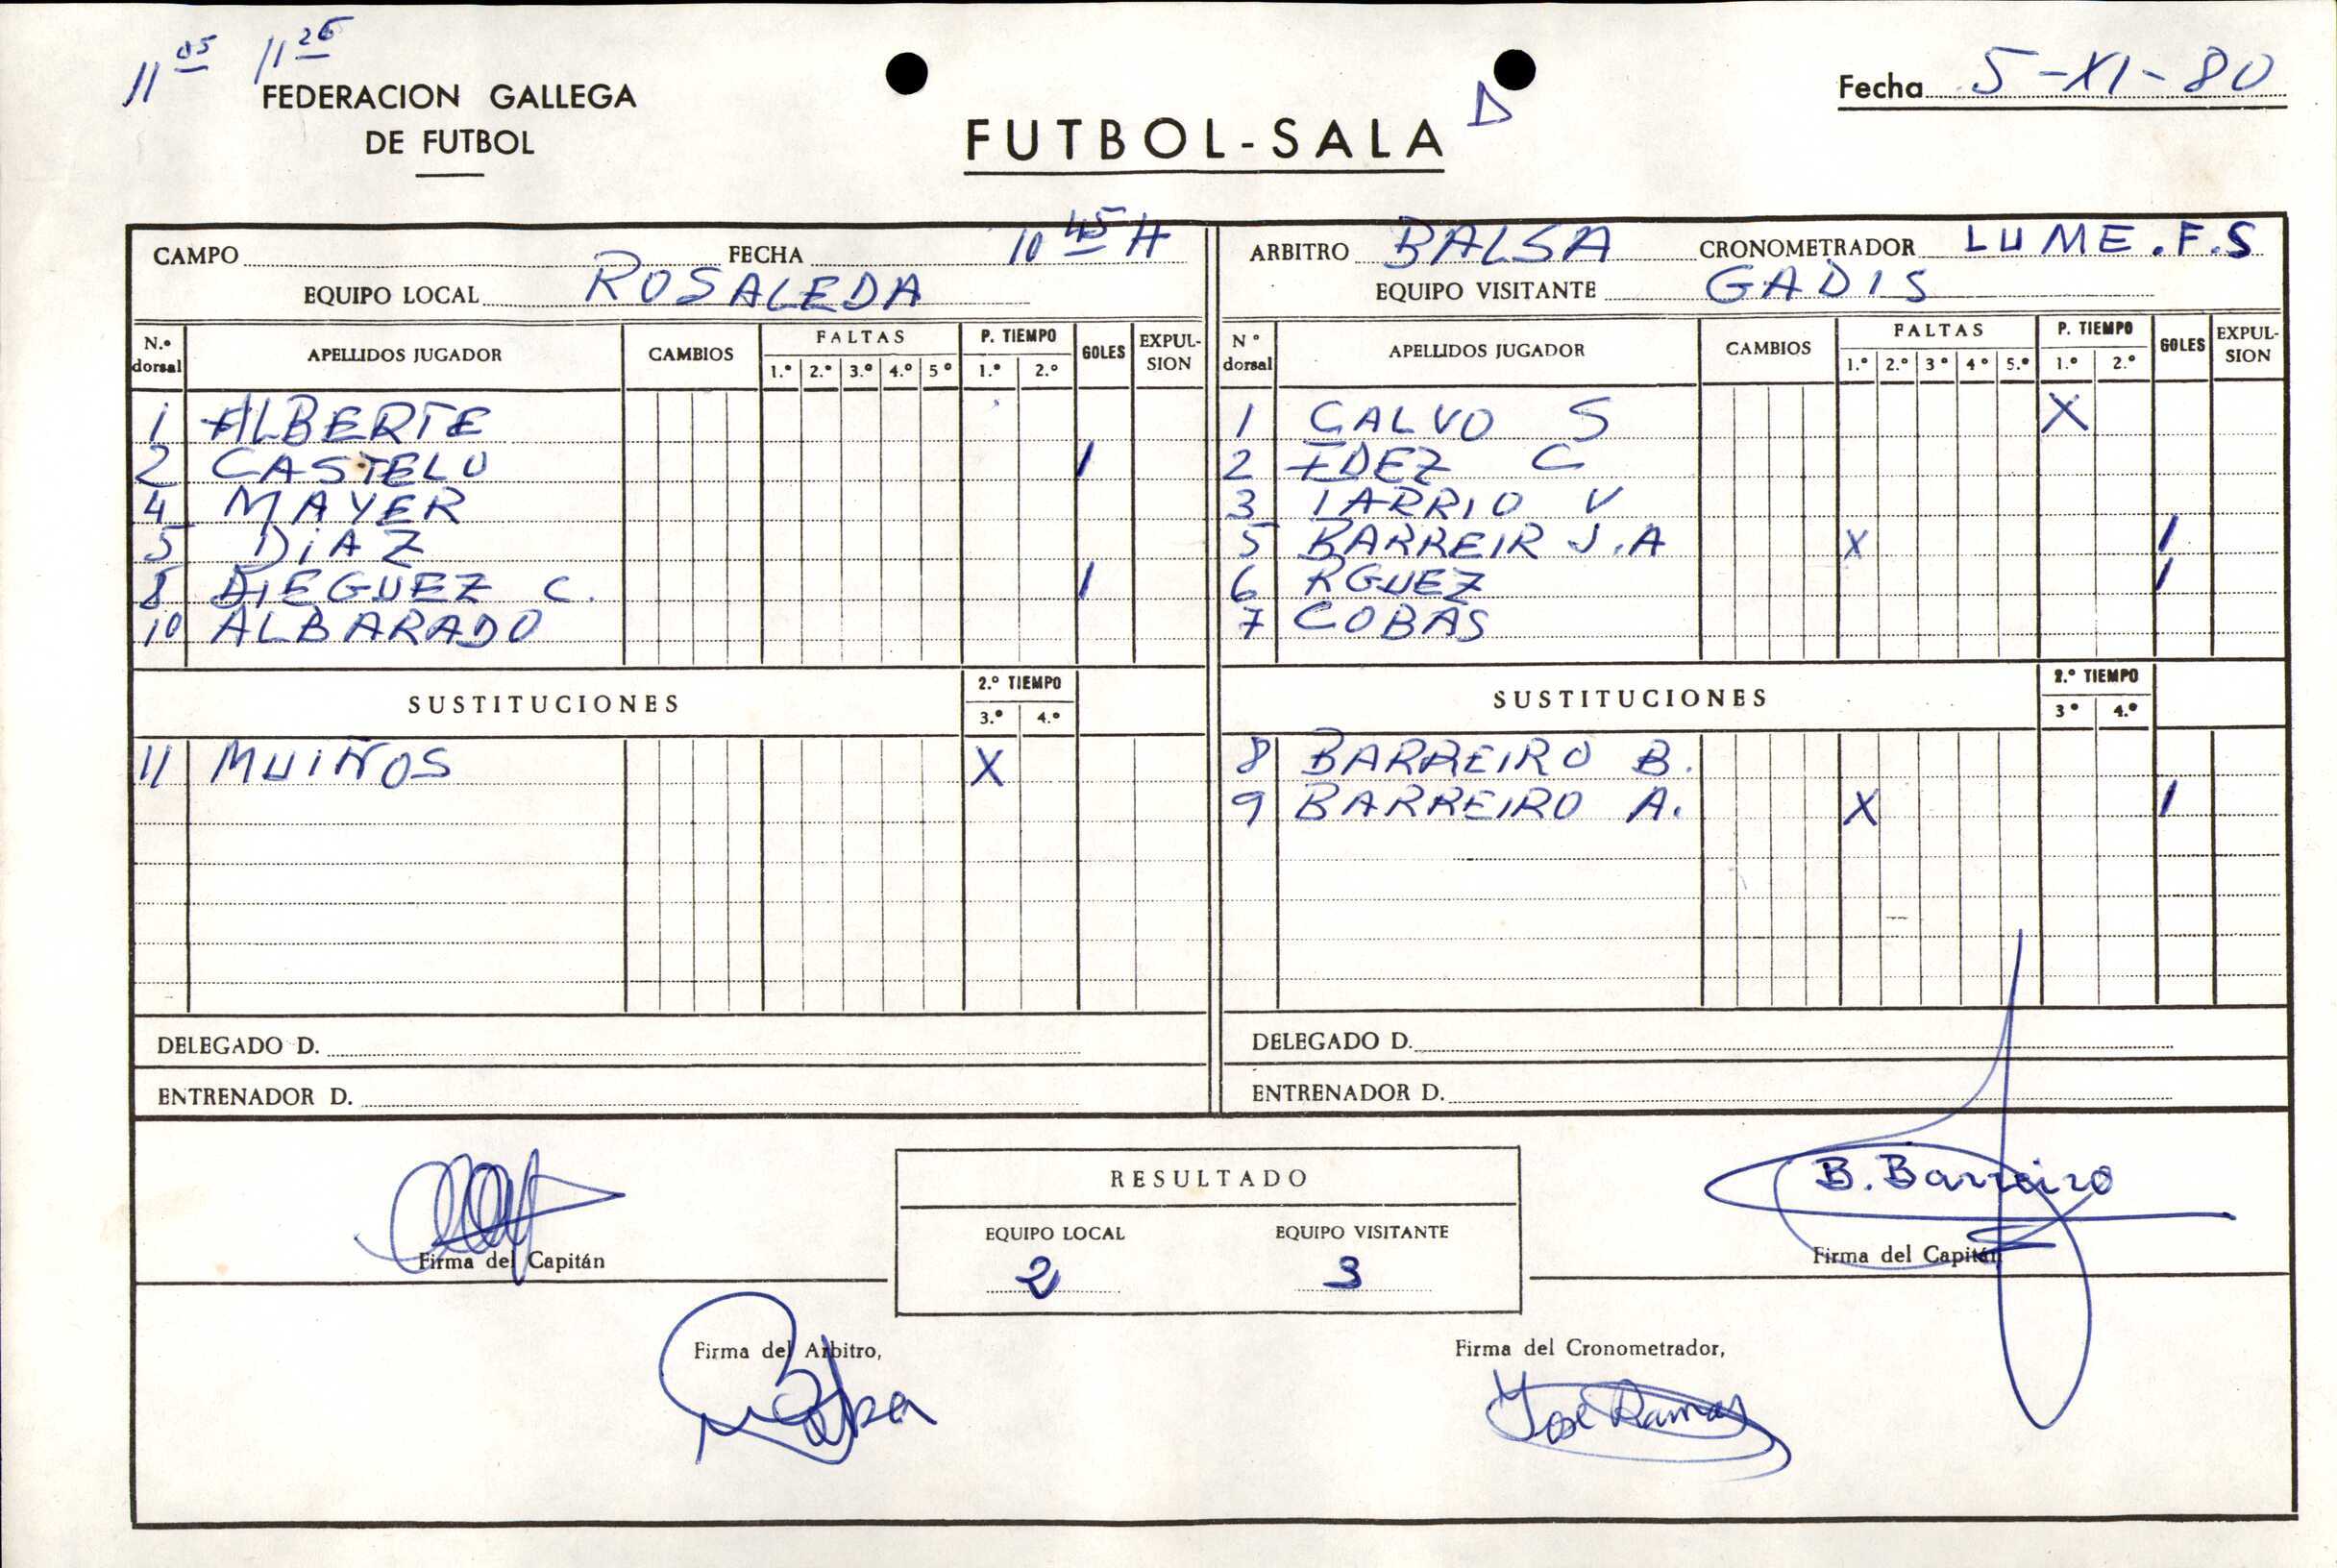 11 05 11 26
FEDERACION GALLEGA
DE FUTBOL
FUTBOL-SALA D
Fecha 5-XI-80
CAMPO FECHA 10 45 H
EQUIPO LOCAL ROSALEDA
N.º dorsal APELLIDOS JUGADOR CAMBIOS FALTAS 1.º 2.º 3.º 4.º 5º P. TIEMPO 1.º 2.º GOLES EXPULSION
1 ALBERTE
2 CASTELO 1
4 MAYER
5 DiAZ
8 DIEGUEZ C. 1
10 ALBARADO
SUSTITUCIONES 2.º TIEMPO 3.º 4.º
11 MUIÑOS X
DELEGADO D.
ENTRENADOR D.
ARBITRO BALSA CRONOMETRADOR LUME.F.S
EQUIPO VISITANTE GADIS
Nº dorsal APELLIDOS JUGADOR CAMBIOS FALTAS 1.º 2.º 3º 4º 5.º P. TIEMPO 1.º 2.º GOLES EXPULSION
1 CALVO S X
2 FDEZ C
3 TARRIO V
5 BARREIR J.A X 1
6 RGUEZ 1
7 COBAS
SUSTITUCIONES 2.º TIEMPO 3º 4.º
8 BARREIRO B.
9 BARREIRO A. X 1
DELEGADO D.
ENTRENADOR D.
Firma del Capitán
RESULTADO
EQUIPO LOCAL EQUIPO VISITANTE
2 3
B. Barreiro
Firma del Capitán
Firma del Arbitro,
Balsa
Firma del Cronometrador,
José Ramas